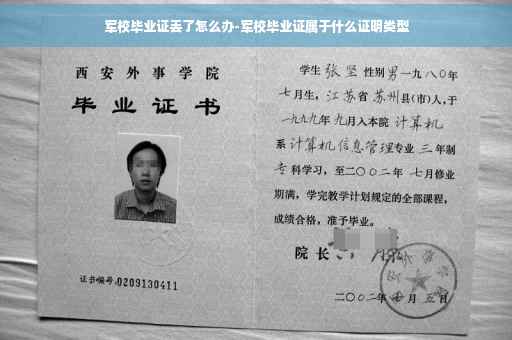 军校毕业证丢了怎么办-军校毕业证属于什么证明类型
西安外事学院
毕业证书
证书编号:0209130411
学生 张坚 性别 男 一九八〇年
七月生,江苏省 苏州县(市)人,于
一九九九年 九月入本院 计算机
系 计算机信息管理专业 三年制
专科学习,至二〇〇二年 七月修业
期满,学完教学计划规定的全部课程,
成绩合格,准予毕业。
院长
二〇〇二年 月 五日